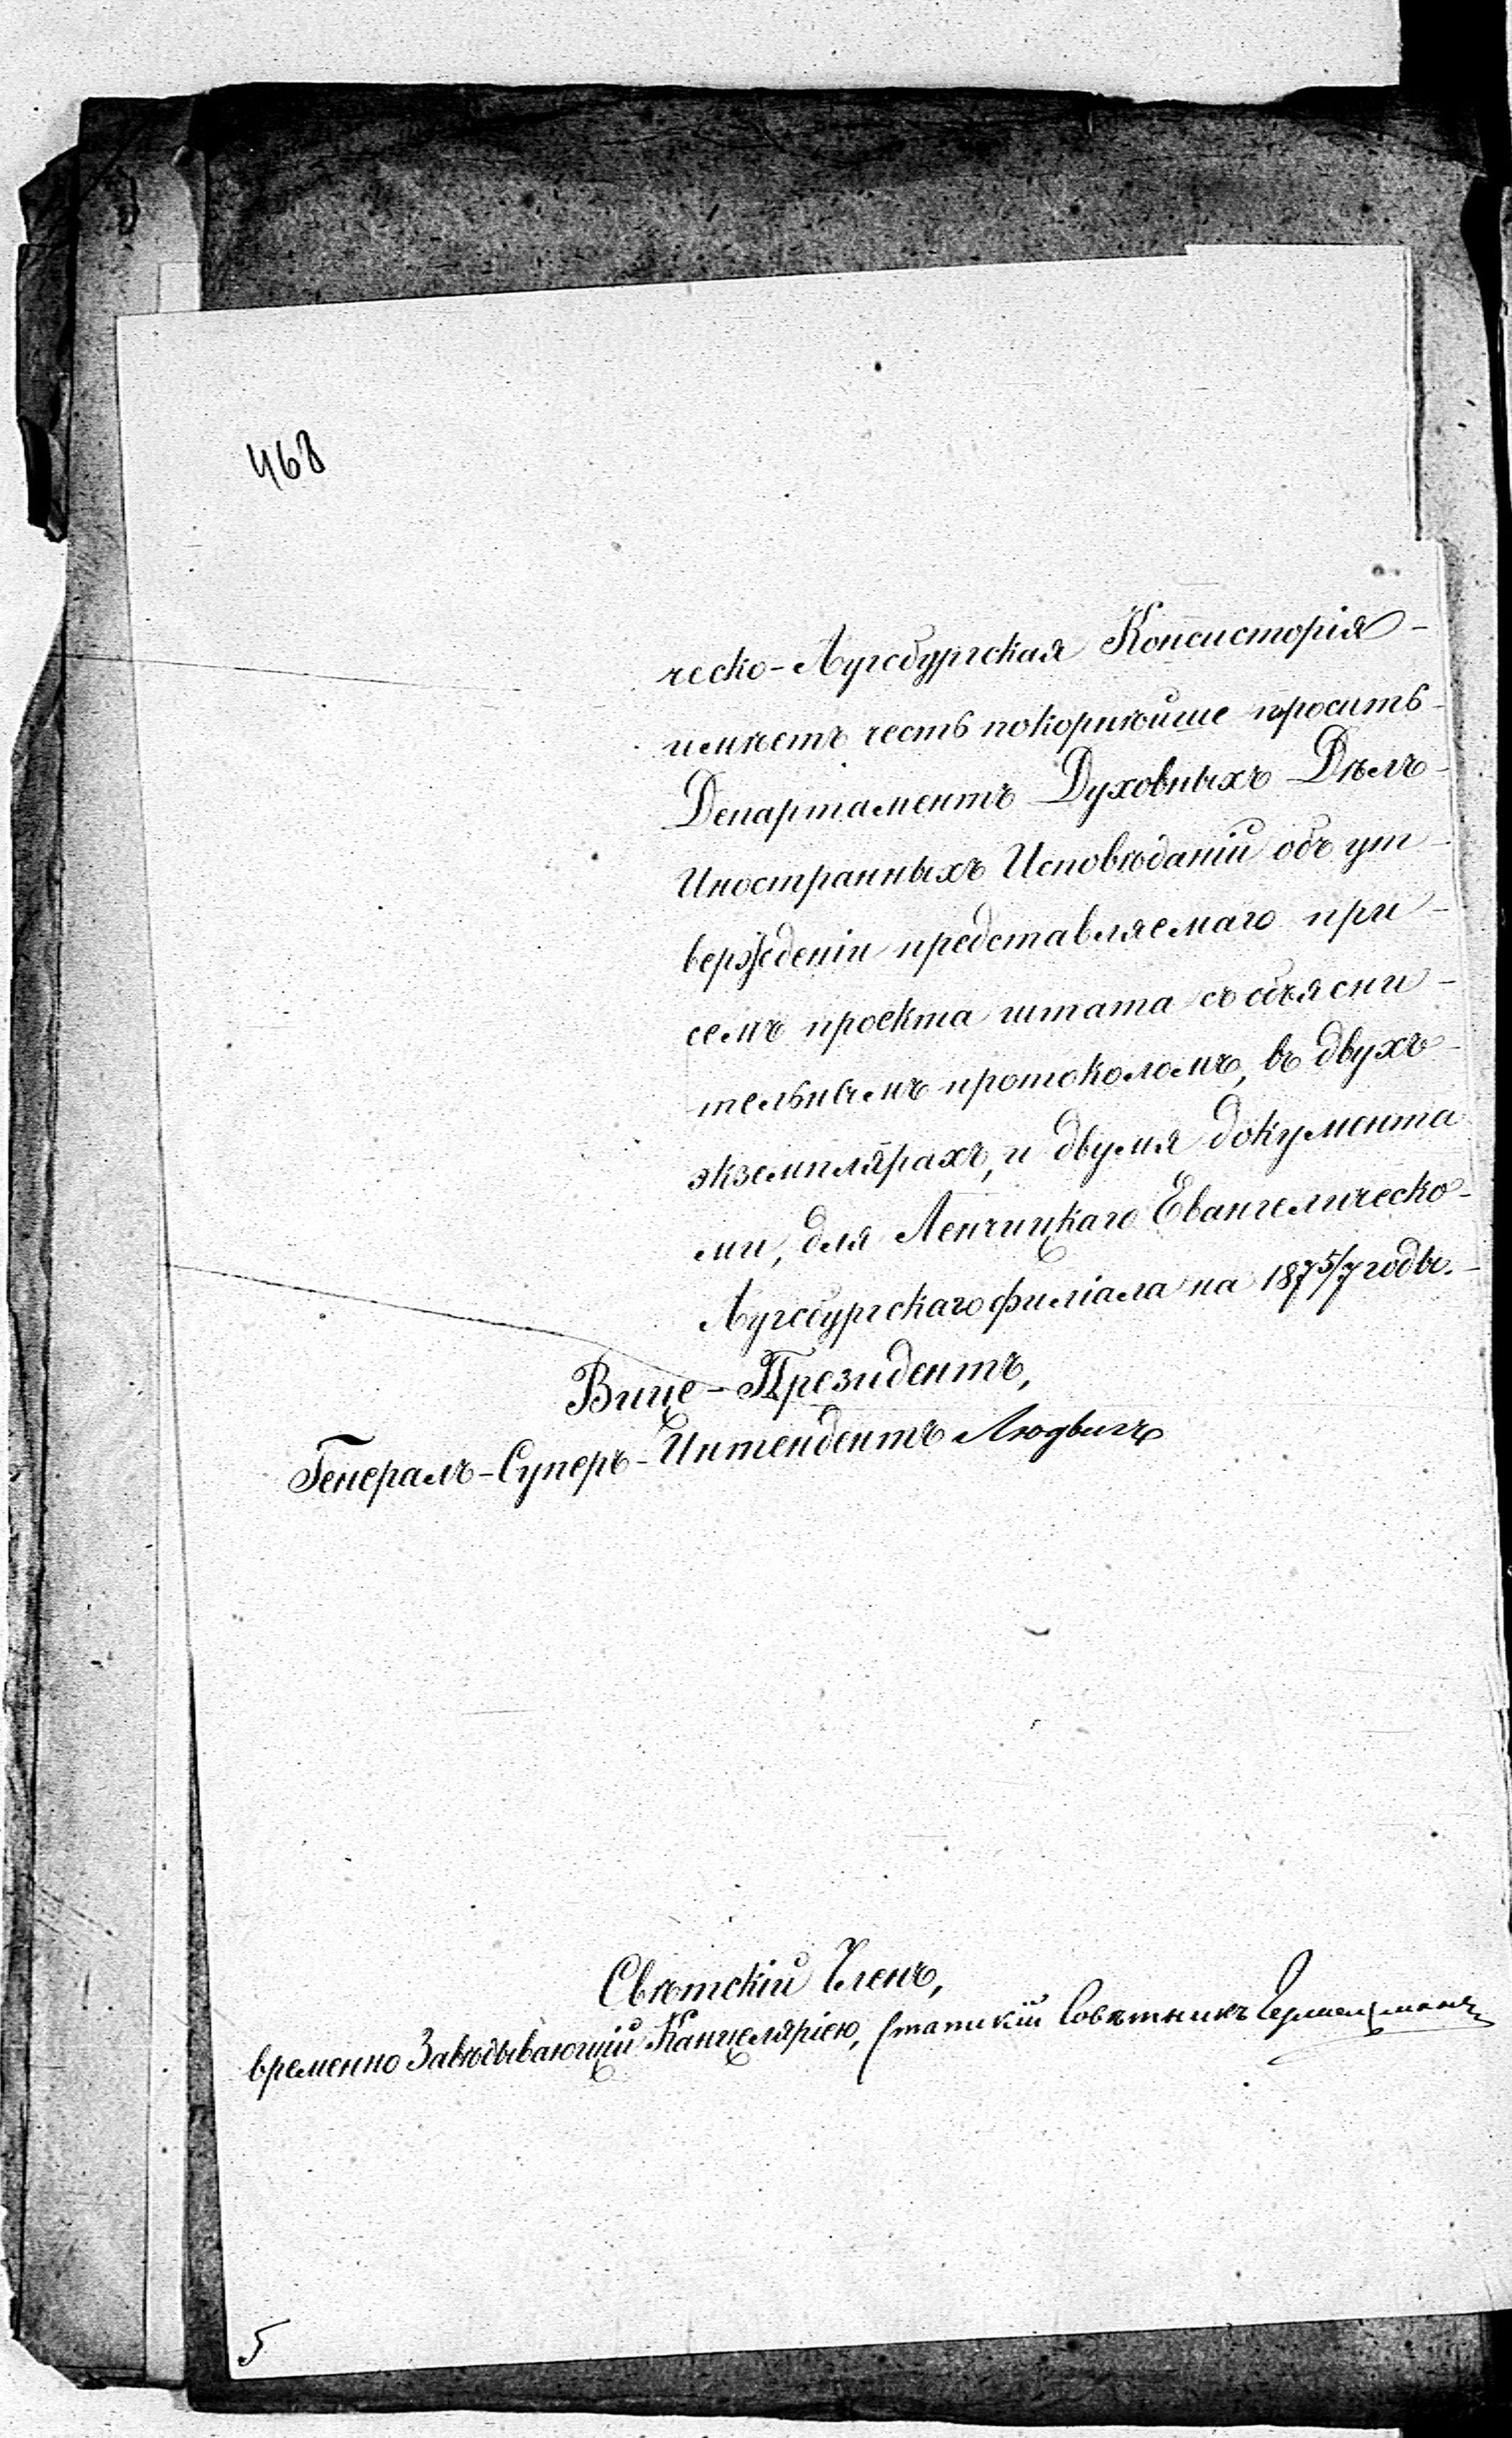 468
ческо-Аугсбургская Консисторія
имѣетъ честь покорнѣйше просить
Департаментъ Духовныхъ Дѣлъ
Иностранныхъ Исповѣданій объ ут-
вержденіи представляемаго при
семъ проекта штата съ объясни-
тельнымъ протоколомъ, въ двухъ
экземплярахъ, и двумя документа
ми, для Ленчицкаго Евангелическо-
Аугсбургскаго филіала на 1875/7 годы.
Вице-Президентъ,
Генералъ-Суперъ-Интендентъ Людвигъ
Свѣтскій Членъ,
временно Завѣдывающій Канцеляріею, Статскій Совѣтникъ
5